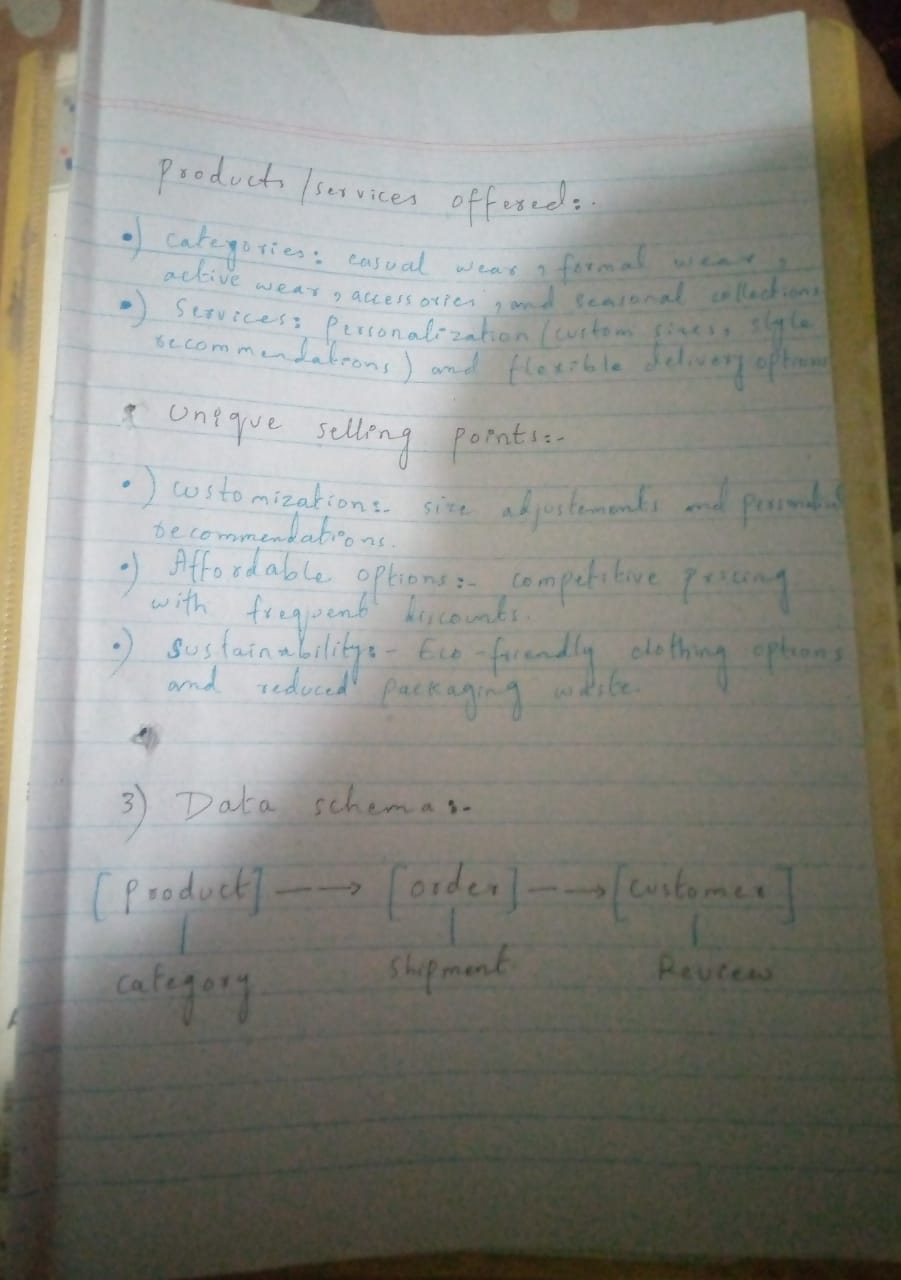 Products/services offered:-
•) categories: casual wear, formal wear,
active wear, accessories, and seasonal collections
•) Services: Personalization (custom sizes, style
recommendations) and flexible delivery options
Unique selling points:-
•) customization:- size adjustements and
recommendations.
•) Affordable options:- competitive pricing
with frequent discounts.
•) Sustainability:- Eco-friendly clothing options
and reduced packaging waste.
3) Data schema:-
[Product] --→ [order] --→ [customer]
category shipment Review